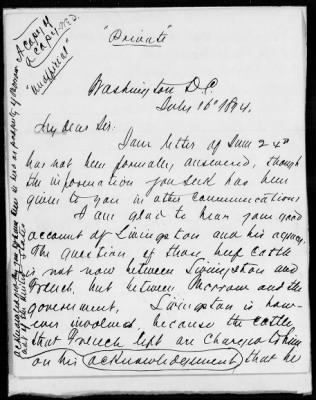 A copy of
a copy
"Unofficial"
"Private"
Washington D.C.
July 16th 1894.
My dear Sir:
Your letter of June 24th
has not been formally answered, though
the information you seek has been
given to you in other communications
I am glad to hear your good
account of Livingston and his agency.
The question of those beef cattle
is not now between Livingston and
French, but between Morrow and the
government. Livingston is how-
ever involved, because the cattle
that French left are charged to him
on his acknowledgement that he
of the United States